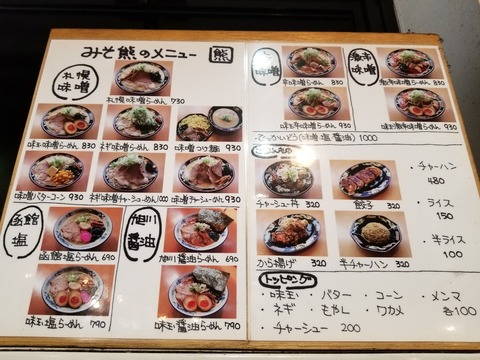 みそ熊のメニュー
熊
札幌味噌
札幌味噌らーめん 730
味玉味噌らーめん 830
ネギ味噌らーめん 830
味噌つけ麺 930
味噌バターコーン 930
ネギ味噌チャーシューめん 1000
味噌チャーシューめん 930
函館塩
函館塩らーめん 690
味玉塩らーめん 790
旭川醤油
旭川醤油らーめん 690
味玉醤油らーめん 790
辛味噌
辛味噌らーめん 830
味玉辛味噌らーめん 930
激辛味噌
激辛味噌らーめん 830
味玉激辛味噌らーめん 930
でっかいどう(味噌・塩・醤油) 1000
チャーシュー丼 320
餃子 320
から揚げ 320
半チャーハン 320
・チャーハン
480
・ライス
150
・半ライス
100
トッピング
・味玉・バター・コーン・メンマ
・ネギ・もやし・ワカメ 各100
・チャーシュー 200